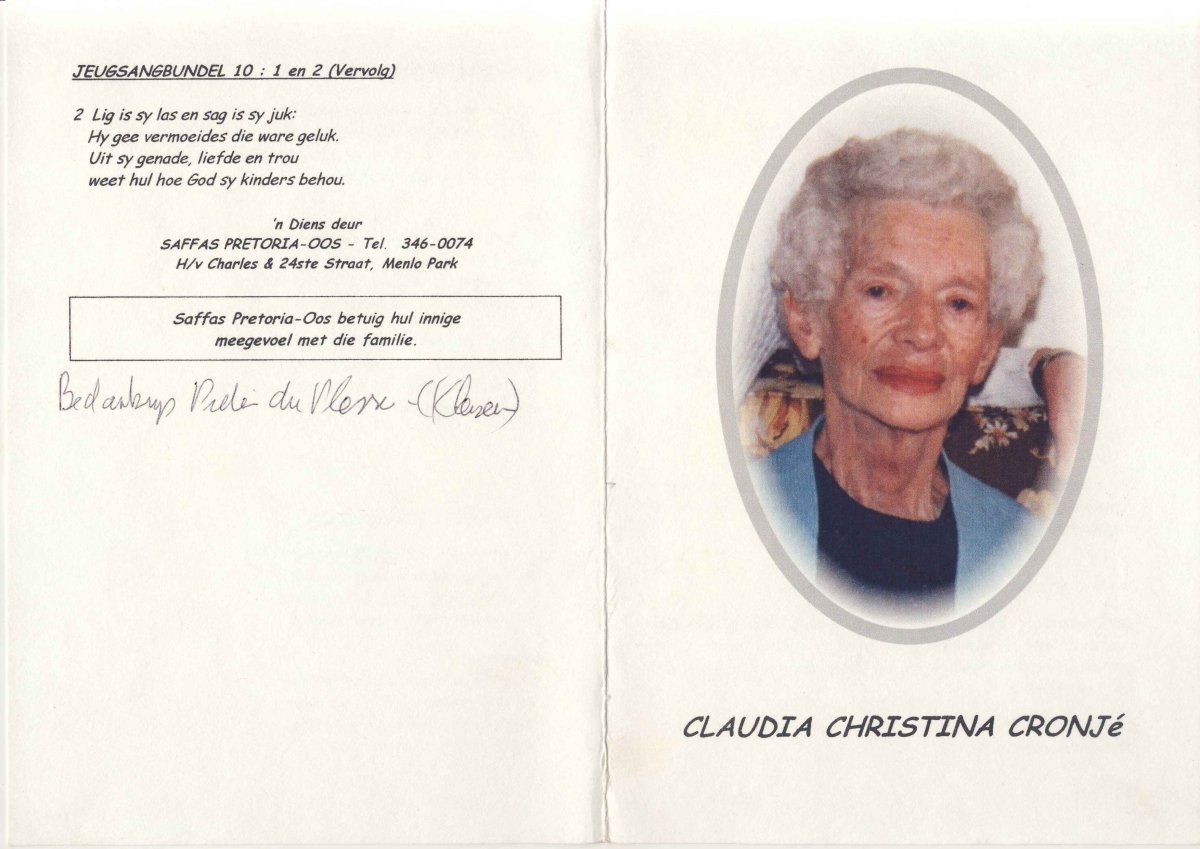 JEUGSANGBUNDEL 10 : 1 en 2 (Vervolg)
2 Lig is sy las en sag is sy juk:
Hy gee vermoeides die ware geluk.
Uit sy genade, liefde en trou
weet hul hoe God sy kinders behou.
'n Diens deur
SAFFAS PRETORIA-OOS - Tel. 346-0074
H/v Charles & 24ste Straat, Menlo Park
Saffas Pretoria-Oos betuig hul innige
meegevoel met die familie.
du
CLAUDIA CHRISTINA CRONJé